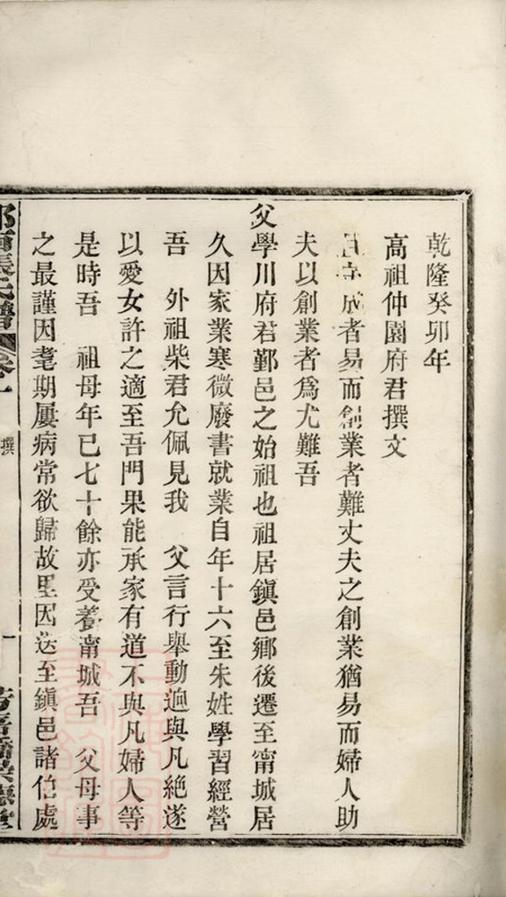 乾隆癸卯年
高祖仲園府君撰文
成者易而創業者難丈夫之創業猶易而婦人助
夫以創業者爲尤難吾
父學川府君鄞邑之始祖也祖居鎮邑鄉後遷至甯城居
久因家業寒微廢書就業自年十六至朱姓學習經營
吾　外祖柴君允佩見我　父言行舉動迥與凡絶遂
以愛女許之適至吾門果能承家有道不與凡婦人等
是時吾　祖母年已七十餘亦受養甯城吾　父母事
之最謹因耄期屢病常欲歸故里因送至鎮邑諸伯處
張氏譜 卷 撰 一